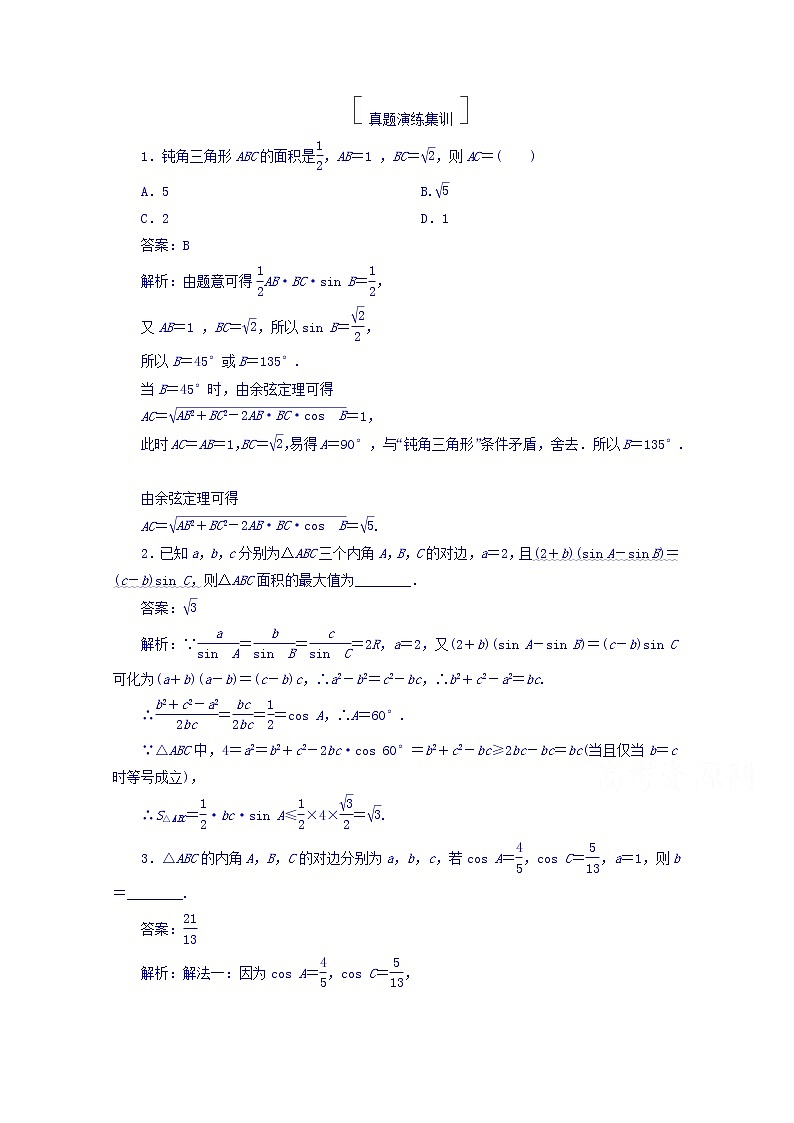 真题演练集训
1.钝角三角形ABC的面积是1/2,AB=1 ,BC=√2,则AC=(  )
A.5 B.√5
C.2 D.1
答案:B
解析:由题意可得1/2AB·BC·sin B=1/2,
又AB=1 ,BC=√2,所以sin B=√2/2,
所以B=45°或B=135°.
当B=45°时,由余弦定理可得
AC=√(AB²+BC²-2AB·BC·cos B)=1,
此时AC=AB=1,BC=√2,易得A=90°,与“钝角三角形”条件矛盾,舍去.所以B=135°.
由余弦定理可得
AC=√(AB²+BC²-2AB·BC·cos B)=√5.
2.已知a,b,c分别为△ABC三个内角A,B,C的对边,a=2,且(2+b)(sin A-sin B)=
(c-b)sin C,则△ABC面积的最大值为________.
答案:√3
解析:∵a/sin A=b/sin B=c/sin C=2R,a=2,又(2+b)(sin A-sin B)=(c-b)sin C
可化为(a+b)(a-b)=(c-b)c,∴a²-b²=c²-bc,∴b²+c²-a²=bc.
∴(b²+c²-a²)/2bc=bc/2bc=1/2=cos A,∴A=60°.
∵△ABC中,4=a²=b²+c²-2bc·cos 60°=b²+c²-bc≥2bc-bc=bc(当且仅当b=c
时等号成立),
∴S△ABC=1/2·bc·sin A≤1/2×4×√3/2=√3.
3.△ABC的内角A,B,C的对边分别为a,b,c,若cos A=4/5,cos C=5/13,a=1,则b
=________.
答案:21/13
解析:解法一:因为cos A=4/5,cos C=5/13,